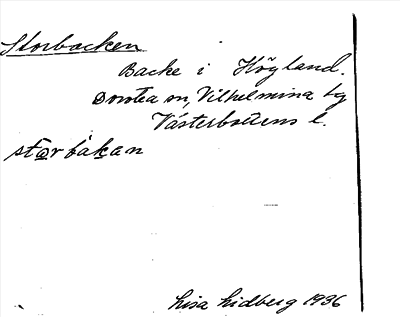 Storbacken
Backe i Högland.
Dorotea sn, Vilhelmina tg
Västerbottens l.
storbakan
Lisa Lidberg 1936